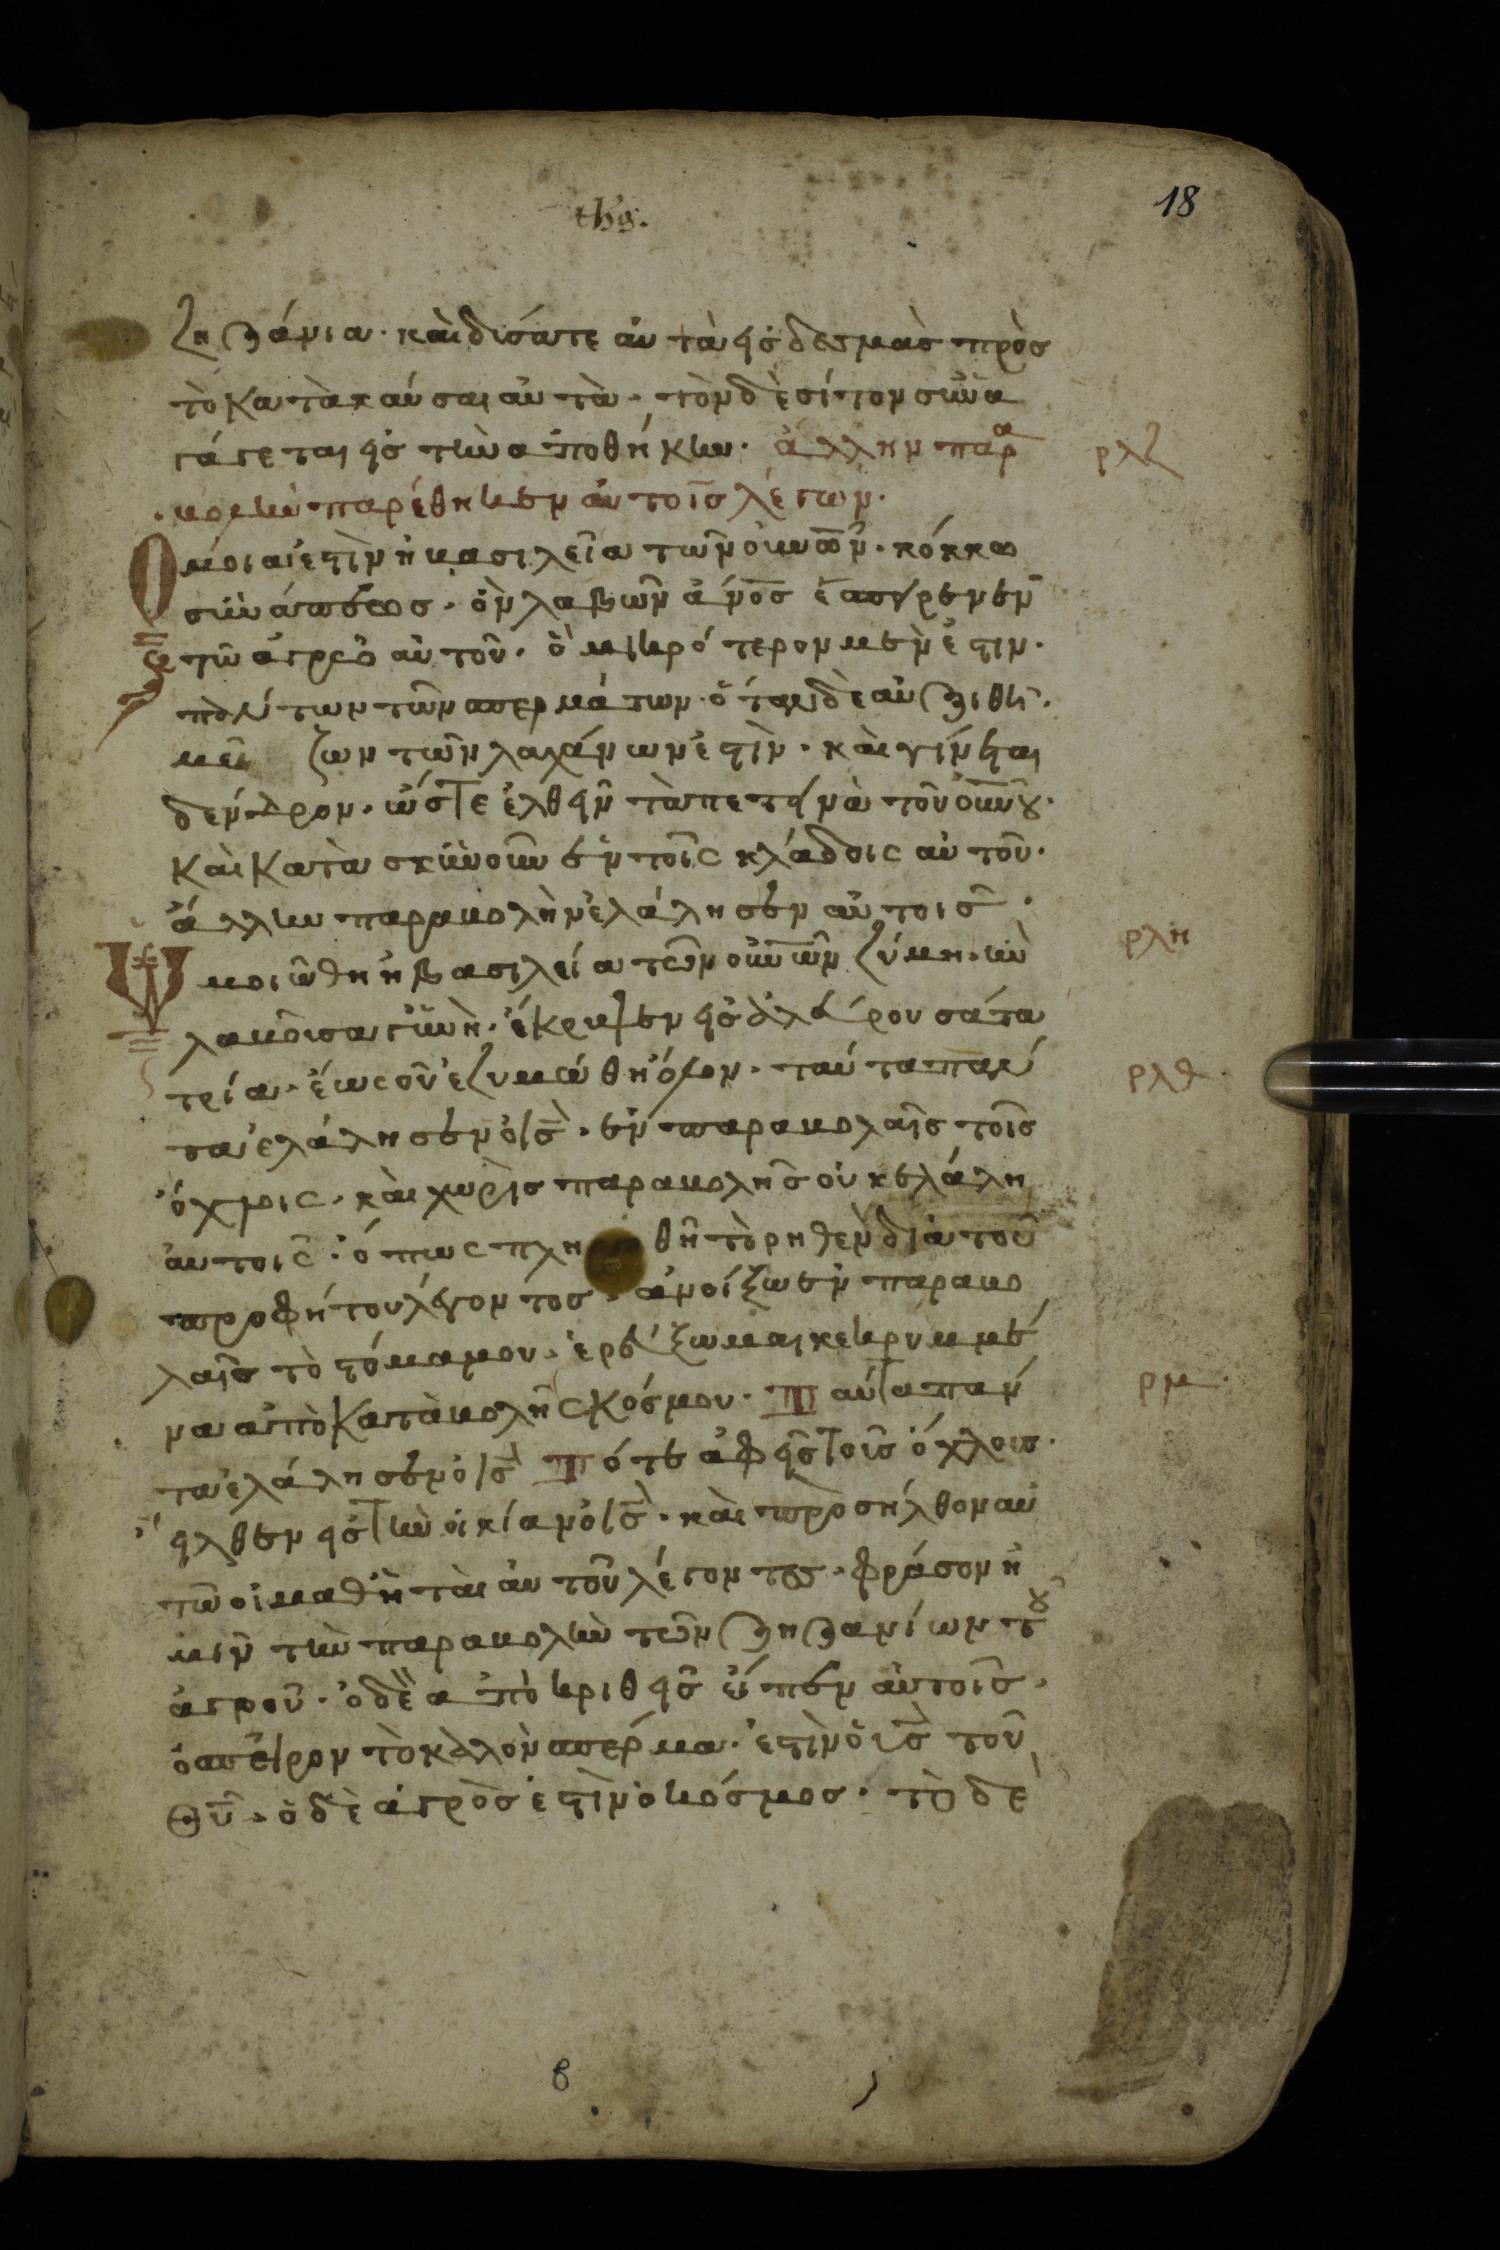 18
ths.
ζηζάνια· καὶ δισάτε αὐτὰ εἰς δεσμὰς πρὸς
τὸ κατακαύσαι αὐτὰ· τὸν δὲ σίτον συνα
γάγεται εἰς τὴν ἀποθήκην· ἄλλην παρα
ρλζ
βολὴν παρέθηκεν αὐτοῖς λέγων·
Ὁμοία ἐστὶν ἡ βασιλεία τῶν οὐνῶν· κόκκω
σινάπεως· ὃν λαβὼν ἄνος ἔσπειρεν ἐν
τῶ ἀγρῶ αὐτοῦ· ὃ μικρότερον μὲν ἐστιν·
πάντων τῶν σπερμάτων· ὅταν δὲ αὐξιθῆ·
μεῖζων τῶν λαχάνων ἐστὶν· καὶ γίνεται
δένδρον· ὥστε ἐλθεῖν τὰ πετεινὰ τοῦ οὐνοῦ·
καὶ κατασκηνοῦν ἐν τοῖς κλάδοις αὐτοῦ·
ἄλλην παραβολὴν ἐλάλησεν αὐτοις·
ρλη
Ὡμοιώθη ἡ βασιλεία τῶν οὐνῶν ζύμη· ἣν
λαβοῦσα γυνὴ· ἔκρυψεν εἰς ἀλεύρου σάτα
τρία· ἕως οὗ ἐζυμώθη ὅλον· ταύτα πάν
ρλθ
τα ἐλάλησεν ὁ ις· ἐν παραβολαῖς τοῖς
ὄχλοις· καὶ χωρὶς παραβολῆς οὐκ ἐλάλη
αυτοις· ὅπως πλη θῆ τὸ ρηθὲν διὰ τοῦ
προφήτου λέγοντος· ἀνοίξω ἐν παραβο
λαῖς τὸ στόμα μου· ἐρεύξωμαι κεκρυμμέ
να ἀπὸ καταβολῆς κόσμου· Ταύτα πάν
ρμ
τα ἐλάλησεν ὁ ις Τότε ἀφεῖς τοῖς ὄχλοις·
ἦλθεν εἰς τὴν οἰκίαν ὁ ις· καὶ προσήλθον αὐ
τῶ οἱ μαθηταὶ αὐτοῦ λέγοντες· φράσον ἡ
μῖν τὴν παραβολὴν τῶν ζηζανίων τοῦ
ἀγροῦ· ὁ δὲ ἀποκριθεῖς εἶπεν αὐτοῖς·
ὁ σπείρων τὸ καλὸν σπέρμα· ἐστὶν ὁ υς τοῦ
θυ· ὁ δὲ ἀγρὸς ἐστὶν ὁ κόσμος· τὸ δὲ
β